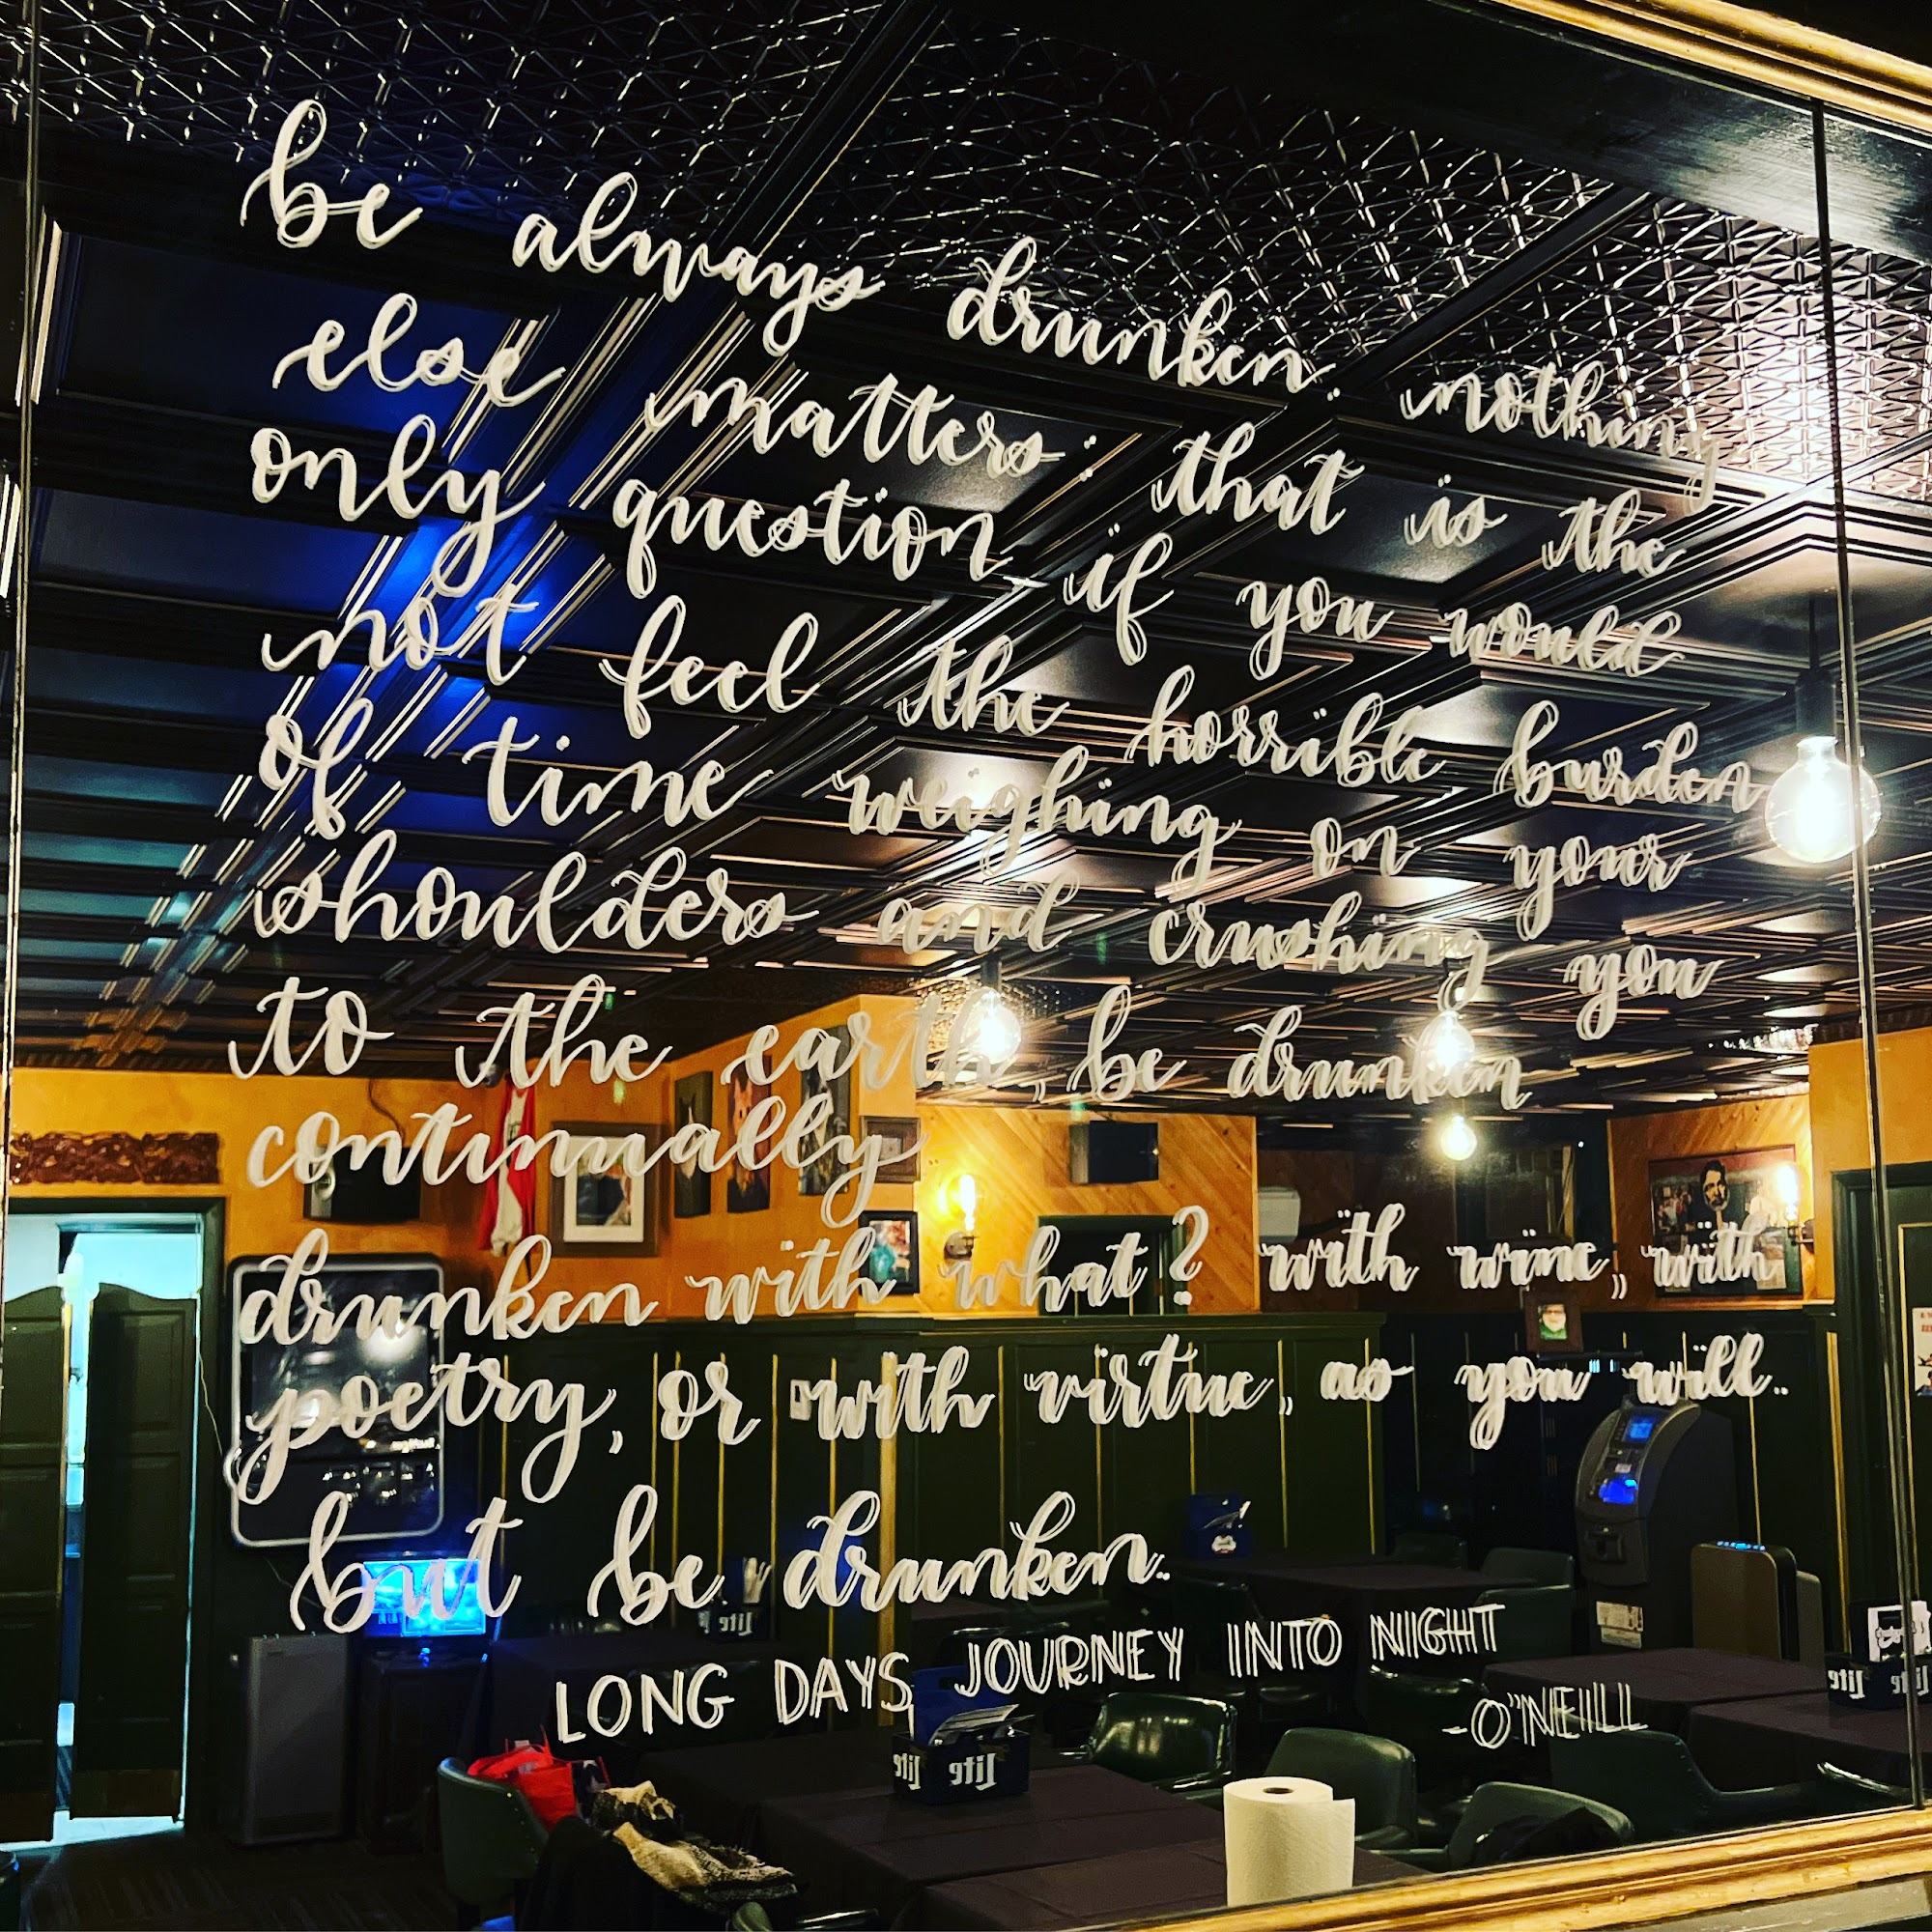 be always drunken. nothing
else matters: that is the
only question. if you would
not feel the horrible burden
of time weighing on your
shoulders and crushing you
to the earth, be drunken
continually
drunken with what? with wine, with
poetry, or with virtue, as you will.
but be drunken.
LONG DAYS JOURNEY INTO NIGHT
-O'NEILL
Lite
Lite
Lite
Lite
Lite